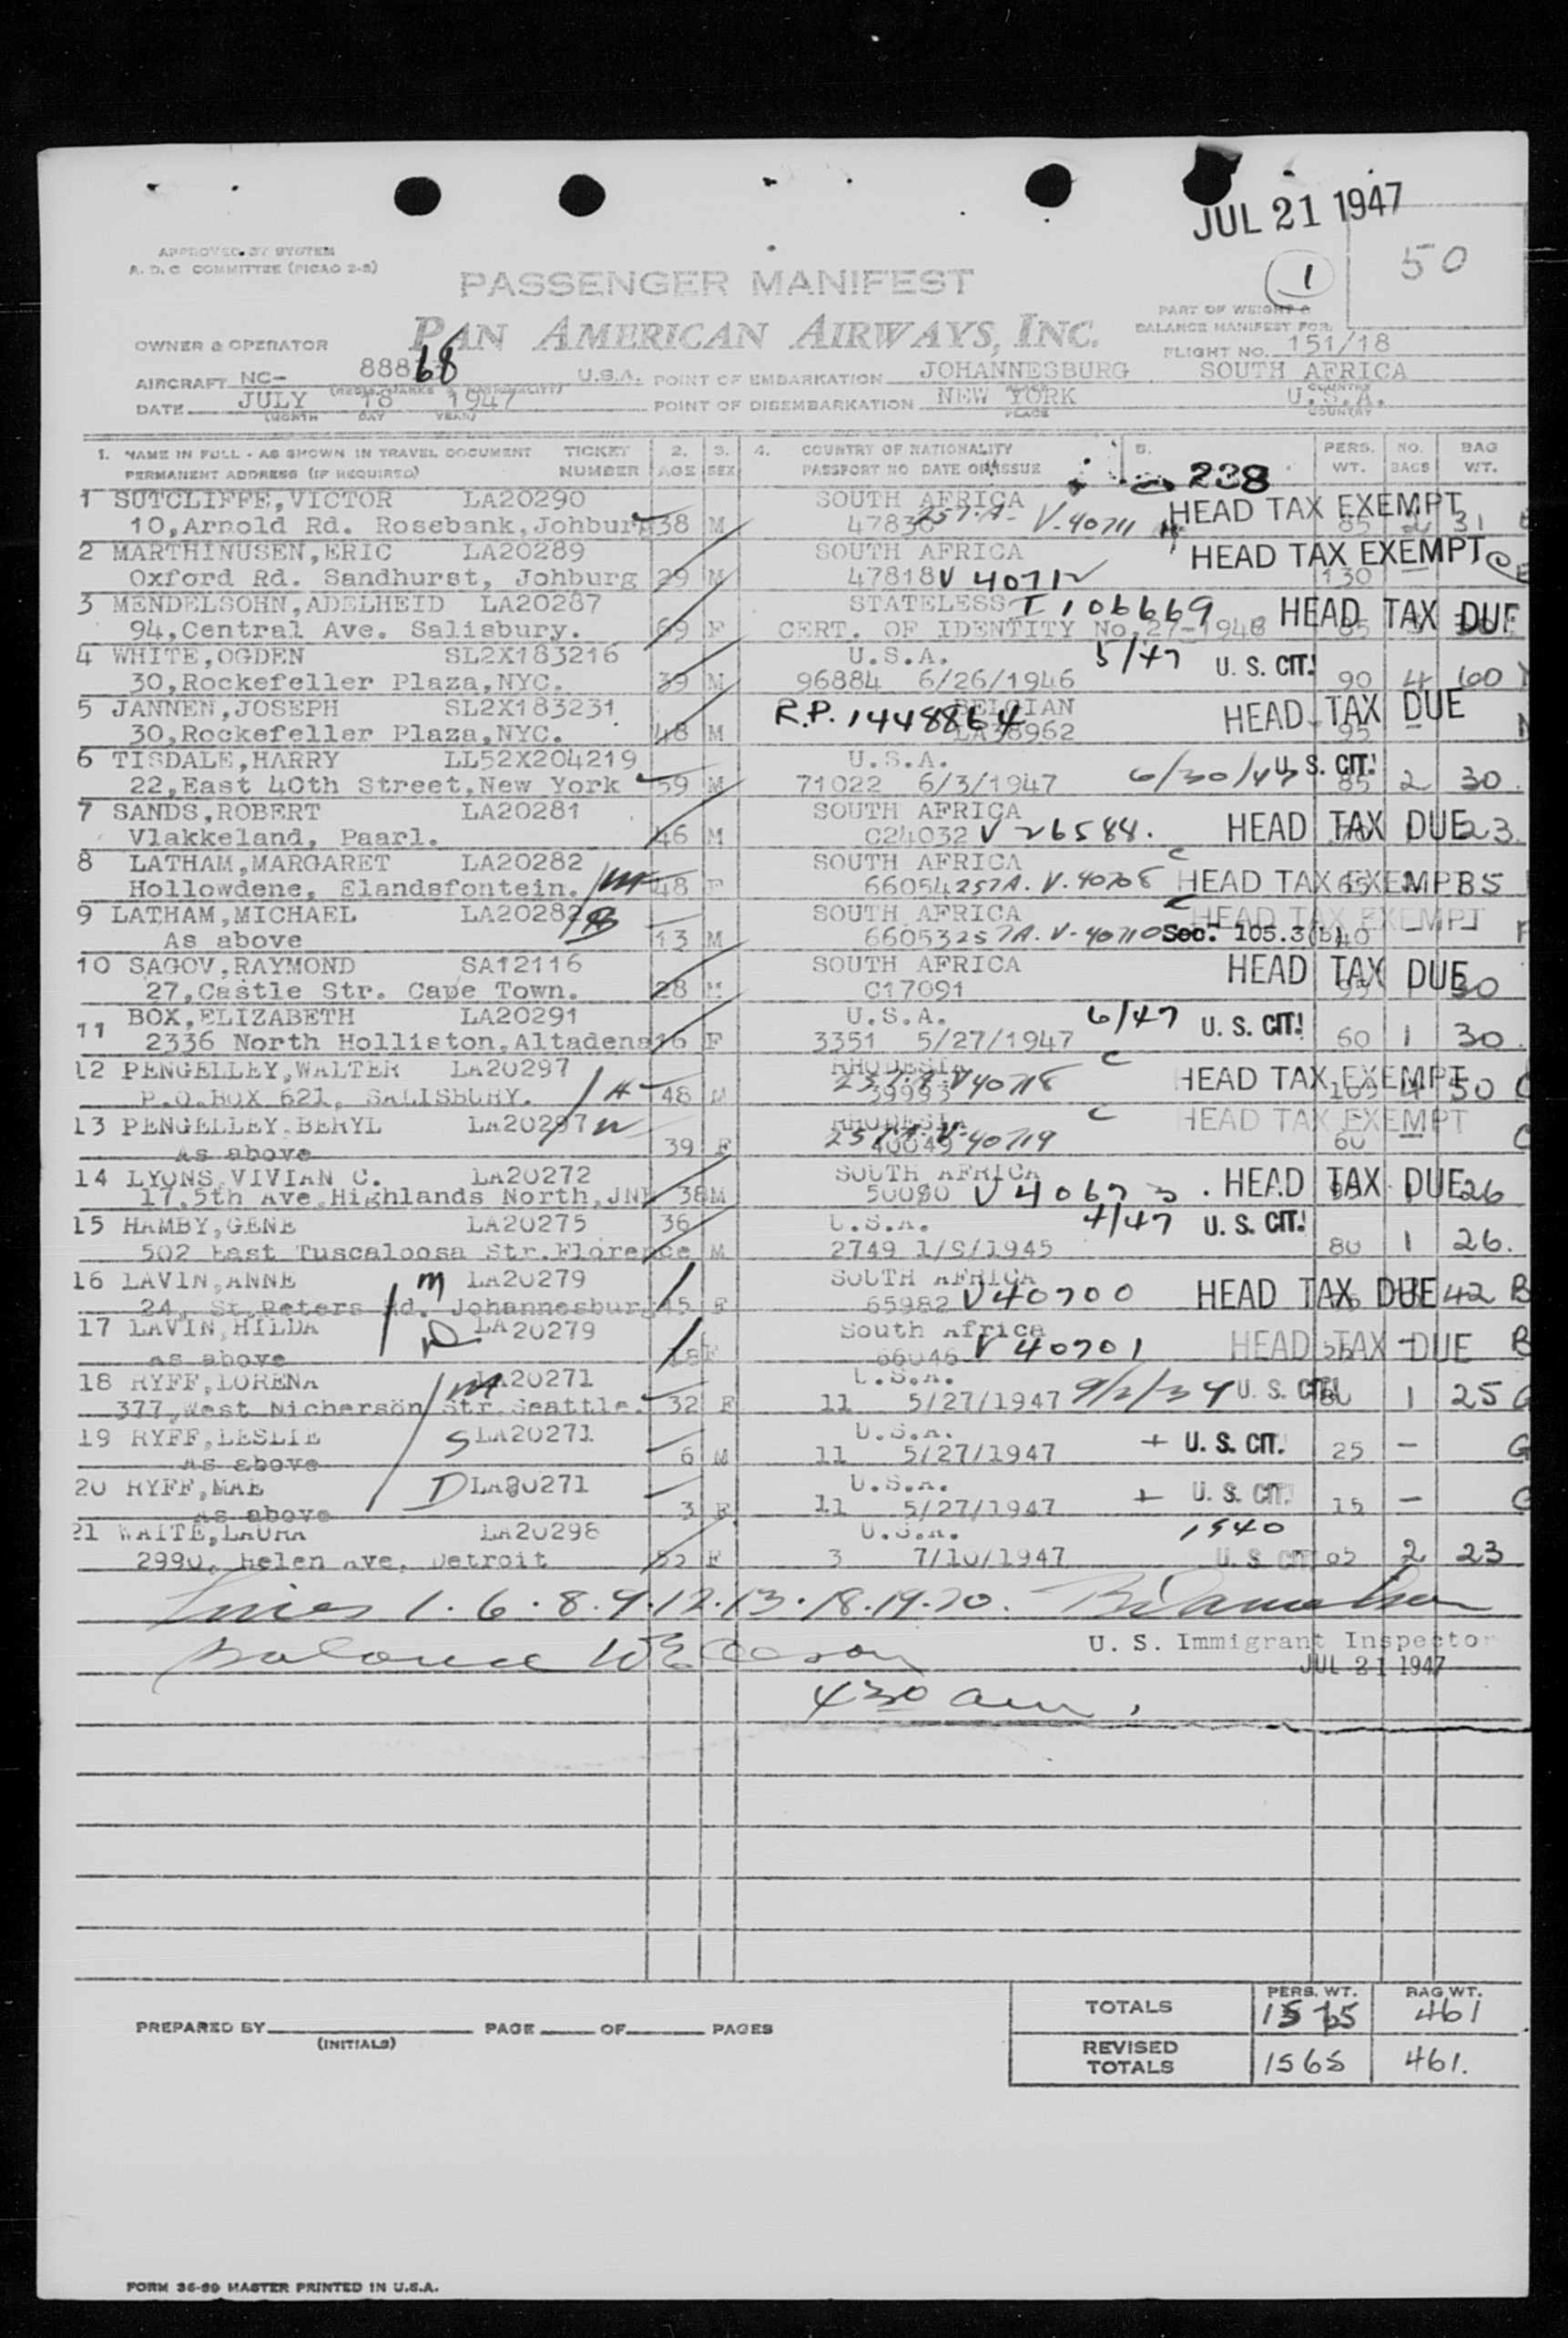 JUL 21 1947
50
1
APPROVED BY SYSTEM
A. D. C COMMITTEE (PICAO 2-8)
PASSENGER MANIFEST
PART OF WEIGHT &
BALANCE MANIFEST FOR
PAN AMERICAN AIRWAYS, INC.
OWNER & OPERATOR
FLIGHT NO. 151/18
AIRCRAFT NC- 88868 U.S.A. POINT OF EMBARKATION JOHANNESBURG SOUTH AFRICA
PLACE COUNTRY
DATE JULY 18 1947 POINT OF DISEMBARKATION NEW YORK U.S.A.
(MONTH DAY YEAR) PLACE COUNTRY
1. NAME IN FULL - AS SHOWN IN TRAVEL DOCUMENT TICKET 2. 3. 4. COUNTRY OF NATIONALITY 5. PERS. NO. BAG
PERMANENT ADDRESS (IF REQUIRED) NUMBER AGE SEX PASSPORT NO DATE OF ISSUE 238 WT. BAGS WT.
1 SUTCLIFFE, VICTOR LA20290 SOUTH AFRICA HEAD TAX EXEMPT
10, Arnold Rd. Rosebank, Johburg 38 M 47836 257.A- V-40711 85 2 31
2 MARTHINUSEN, ERIC LA20289 SOUTH AFRICA HEAD TAX EXEMPT
Oxford Rd. Sandhurst, Johburg 29 M 47818 V 40712 130 -
3 MENDELSOHN, ADELHEID LA20287 STATELESS I 106669 HEAD TAX DUE
94, Central Ave. Salisbury. 69 F CERT. OF IDENTITY No. 27-1948 65
4 WHITE, OGDEN SL2X183216 U.S.A. 5/47 U. S. CIT.
30, Rockefeller Plaza, NYC. 39 M 96884 6/26/1946 90 4 60
5 JANNEN, JOSEPH SL2X183231 BELGIAN HEAD TAX DUE
30, Rockefeller Plaza, NYC. 48 M R.P. 1448864 LA38962 95 -
6 TISDALE, HARRY LL52X204219 U.S.A. U. S. CIT.
22, East 40th Street, New York 59 M 71022 6/3/1947 6/30/47 85 2 30.
7 SANDS, ROBERT LA20281 SOUTH AFRICA HEAD TAX DUE
Vlakkeland, Paarl. 46 M C24032 V 26588. 1 23.
8 LATHAM, MARGARET LA20282 SOUTH AFRICA C
Hollowdene, Elandsfontein. M 48 F 66054 257A. V-40708 HEAD TAX EXEMPT 65 35
9 LATHAM, MICHAEL LA20282 SOUTH AFRICA C HEAD TAX EXEMPT
As above 13 M 66053 257A. V-40710 Sec. 105.3(b) 40
10 SAGOV, RAYMOND SA12116 SOUTH AFRICA HEAD TAX DUE
27, Castle Str. Cape Town. 28 M C17091 95 30
11 BOX, ELIZABETH LA20291 U.S.A. 6/47 U. S. CIT.
2336 North Holliston, Altadena 16 F 3351 5/27/1947 60 1 30.
12 PENGELLEY, WALTER LA20297 RHODESIA C HEAD TAX EXEMPT
P.O. BOX 621, SALISBURY. H 48 M 39993 V40718 4 50 C
13 PENGELLEY, BERYL LA20297 W RHODESIA C HEAD TAX EXEMPT
As above 39 F 40049 V-40719 60 - C
14 LYONS, VIVIAN C. LA20272 SOUTH AFRICA HEAD TAX DUE
17, 5th Ave. Highlands North, JNB 38 M 50080 V 40673 1 26
15 HAMBY, GENE LA20275 36 U.S.A. 4/47 U. S. CIT.
502 East Tuscaloosa Str. Florence M 2749 1/9/1945 80 1 26.
16 LAVIN, ANNE M LA20279 SOUTH AFRICA
24, St. Peters Rd. Johannesburg 45 F 65982 V 40700 HEAD TAX DUE 42 B
17 LAVIN, HILDA D LA20279 South Africa
As above 18 F 66046 V 40701 HEAD TAX DUE B
18 RYFF, LORENA M LA20271 U.S.A.
377, West Nicherson Str. Seattle. 32 F 11 5/27/1947 9/2/34 U. S. CIT. 80 1 25 G
19 RYFF, LESLIE S LA20271 U.S.A.
As above 6 M 11 5/27/1947 + U. S. CIT. 25 - G
20 RYFF, MAE D LA20271 U.S.A.
As above 3 F 11 5/27/1947 + U. S. CIT. 15 - G
21 WAITE, LAURA LA20298 U.S.A. 1940
2990, Helen Ave, Detroit 55 F 3 7/10/1947 U. S. CIT. 65 2 23
Lines 1. 6. 8. 9. 12. 13. 18. 19. 20.
Balance
U. S. Immigrant Inspector
JUL 21 1947
430 am.
PREPARED BY (INITIALS) PAGE OF PAGES
PERS. WT. BAG WT.
TOTALS 461
REVISED TOTALS 1565 461.
FORM 36-99 MASTER PRINTED IN U.S.A.